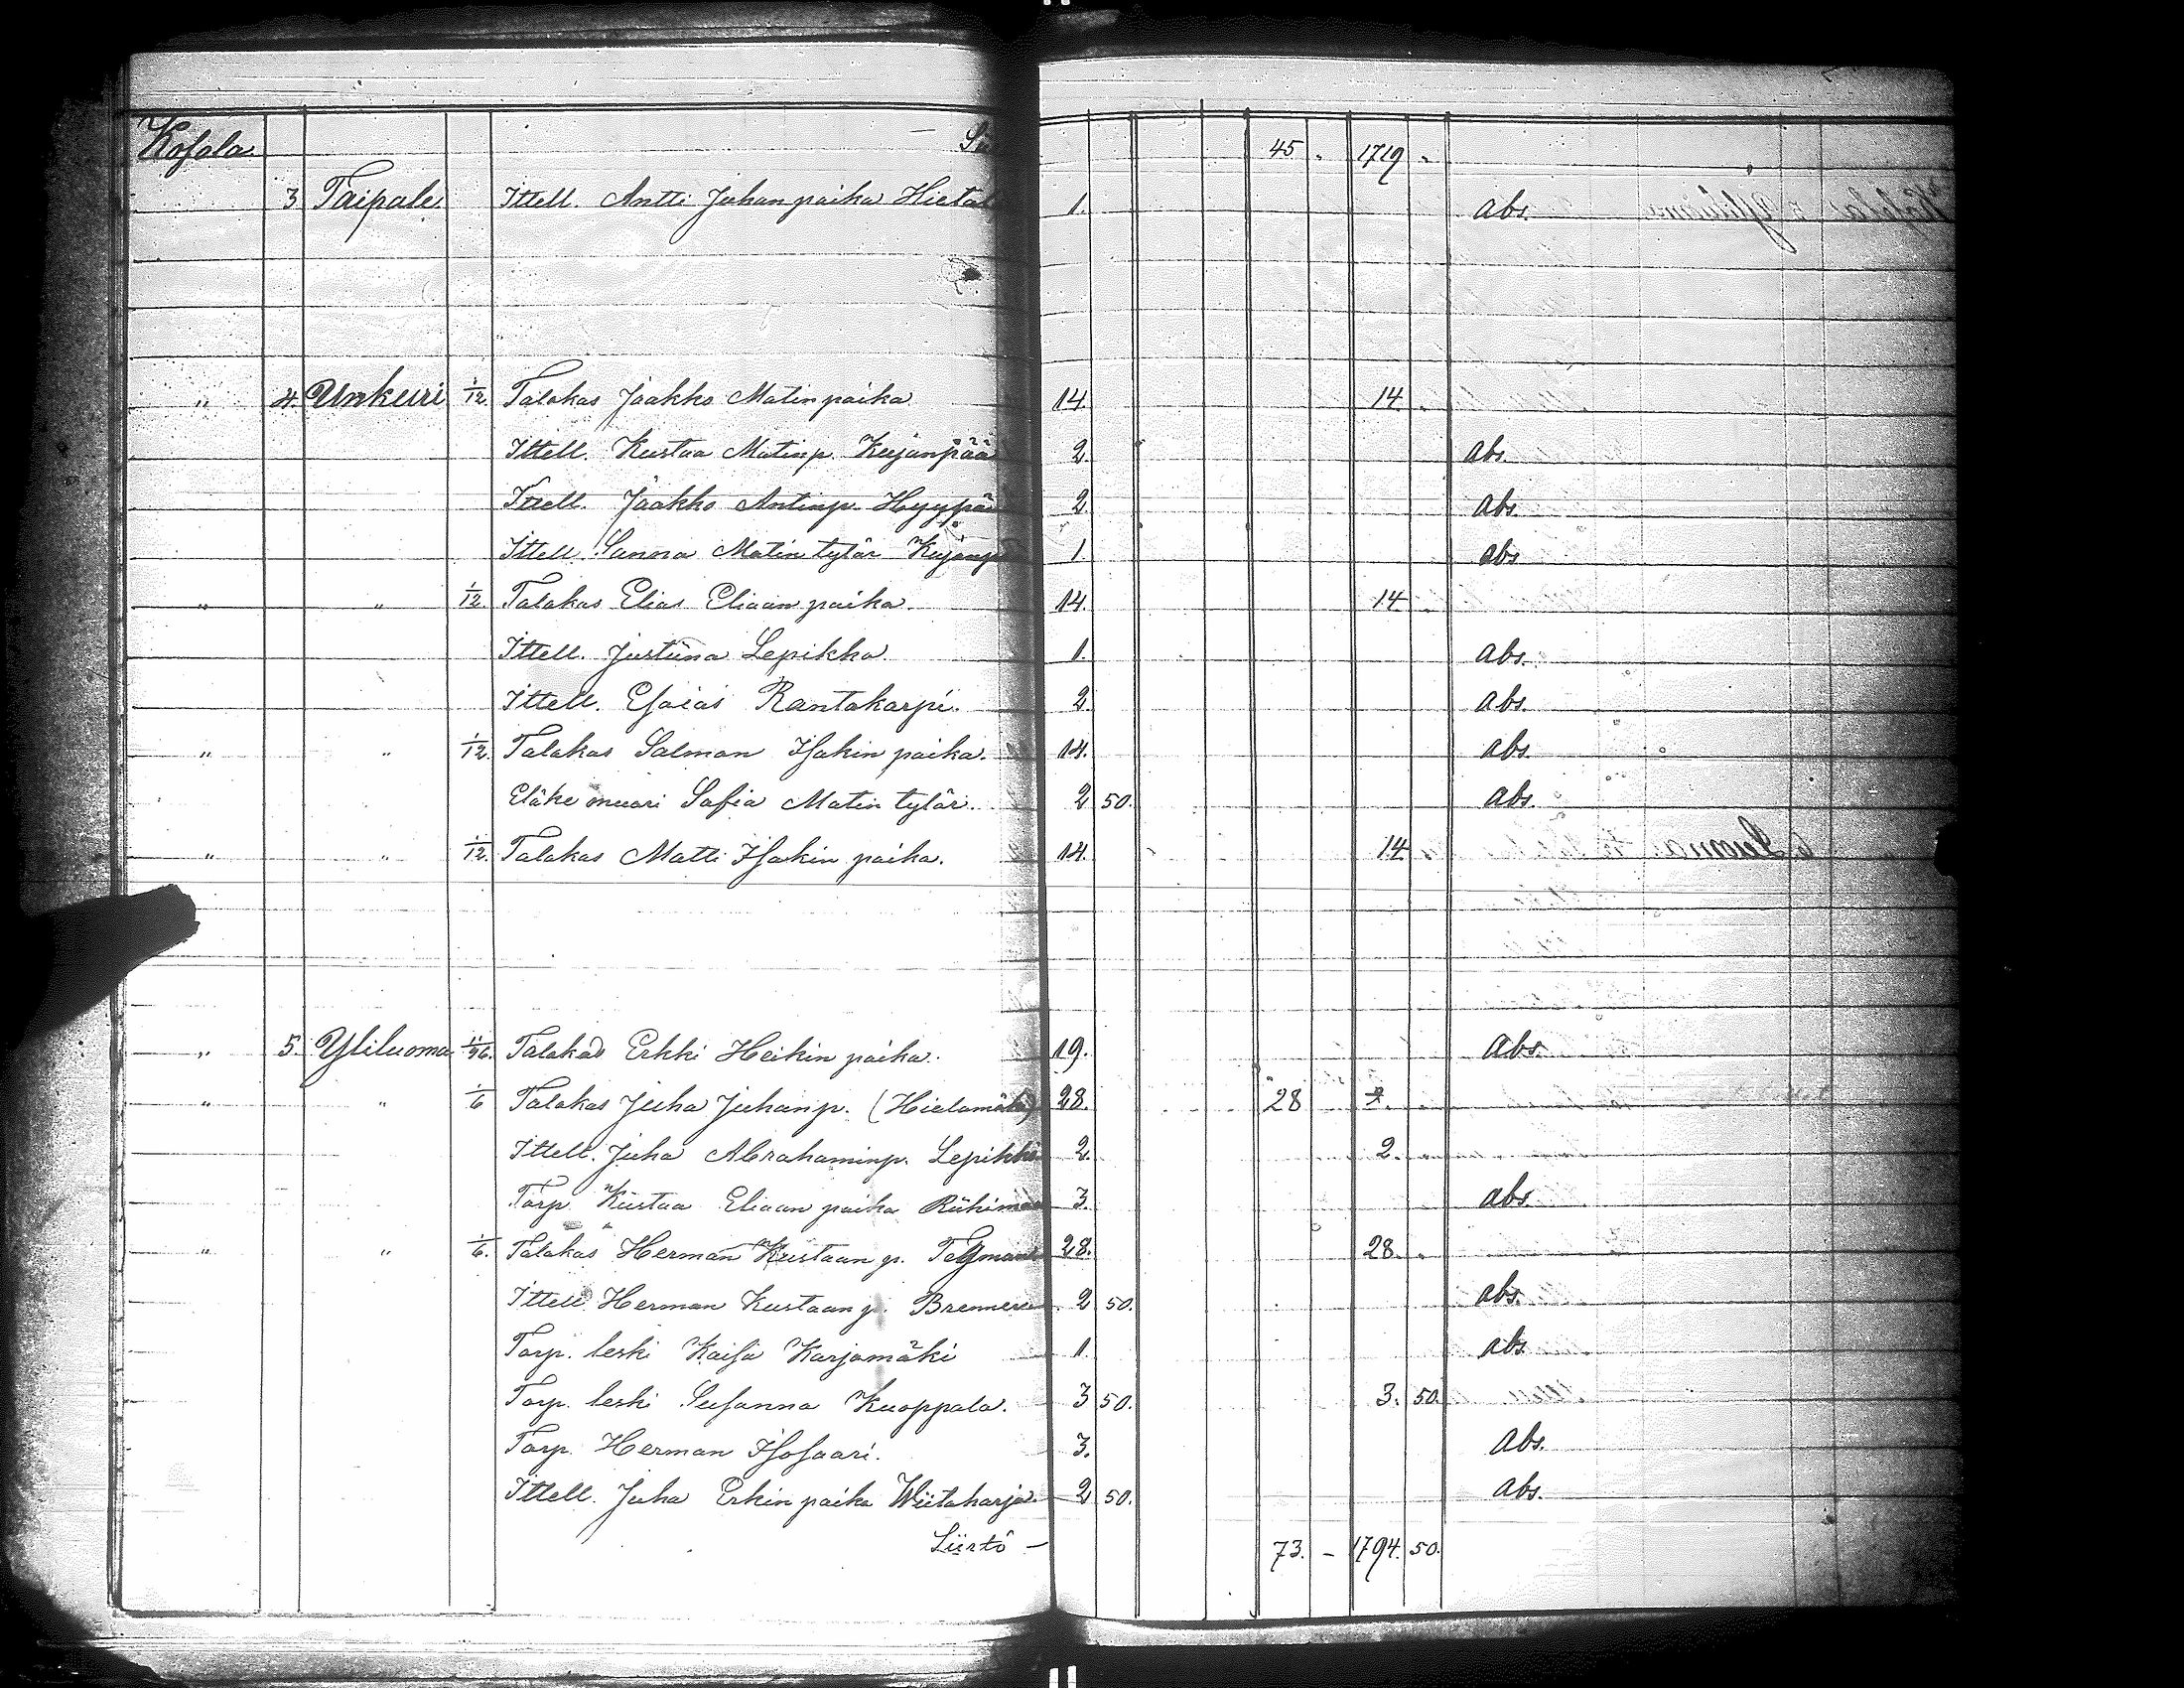 Kosola 45 " 1719 "
3 Taipale Ittell. Antti Juhan poika 1. abs.
" 4. Unkuri 1/12. Talokas Jaakko Matin poika 14. 14 "
Ittell. Kustaa Matinp. Kujanpää 2. abs.
Ittell. Jaakko Antinp. Hyypä 2 abs.
Ittell. Sanna Matin tytär 1. abs
" " 1/12. Talokas Elias Eliaan poika. 14. 14 "
Ittell. Justiina Lepikko 1. abs.
Ittell. Esaias Rantakarpi. 2. abs.
" " 1/12. Talokas Salmon Isakin poika. 14. abs.
Eläke muori Sofia Matin tytär. 2 50. abs.
" " 1/12. Talokas Matti Isakin poika. 14. 14 "
" 5. Yliluoma 11/96. Talokas Erkki Heikin poika. 19. abs.
" " 1/6 Talokas Juha Juhanp. (Hietamäki) 28. 28
Ittell. Juha Abrahaminp. Lepikko 2. 2. "
Torp. Kustaa Eliaan poika 3. abs.
" " 1/6. Talokas Herman Kustaan p. 28. 28. "
Ittell. Herman Kustaan p. 2 50. abs.
Torp. leski Kaisa Karjamäki 1. abs
Torp. leski Susanna Kuoppala. 3 50. 3. 50.
Torp. Herman Isosaari. 3. abs.
Ittell. Juha Erkin poika Wiitaharja 2 50. abs.
Siirtö — 73. - 1794. 50.